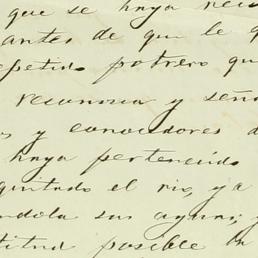 que se haya reco
antes de que le q
epetido potrero qu
reconosca y seña
os y conocedores d
haya pertenecido
quitado el rio, ya
ndola sus aguas, y
titud posible la